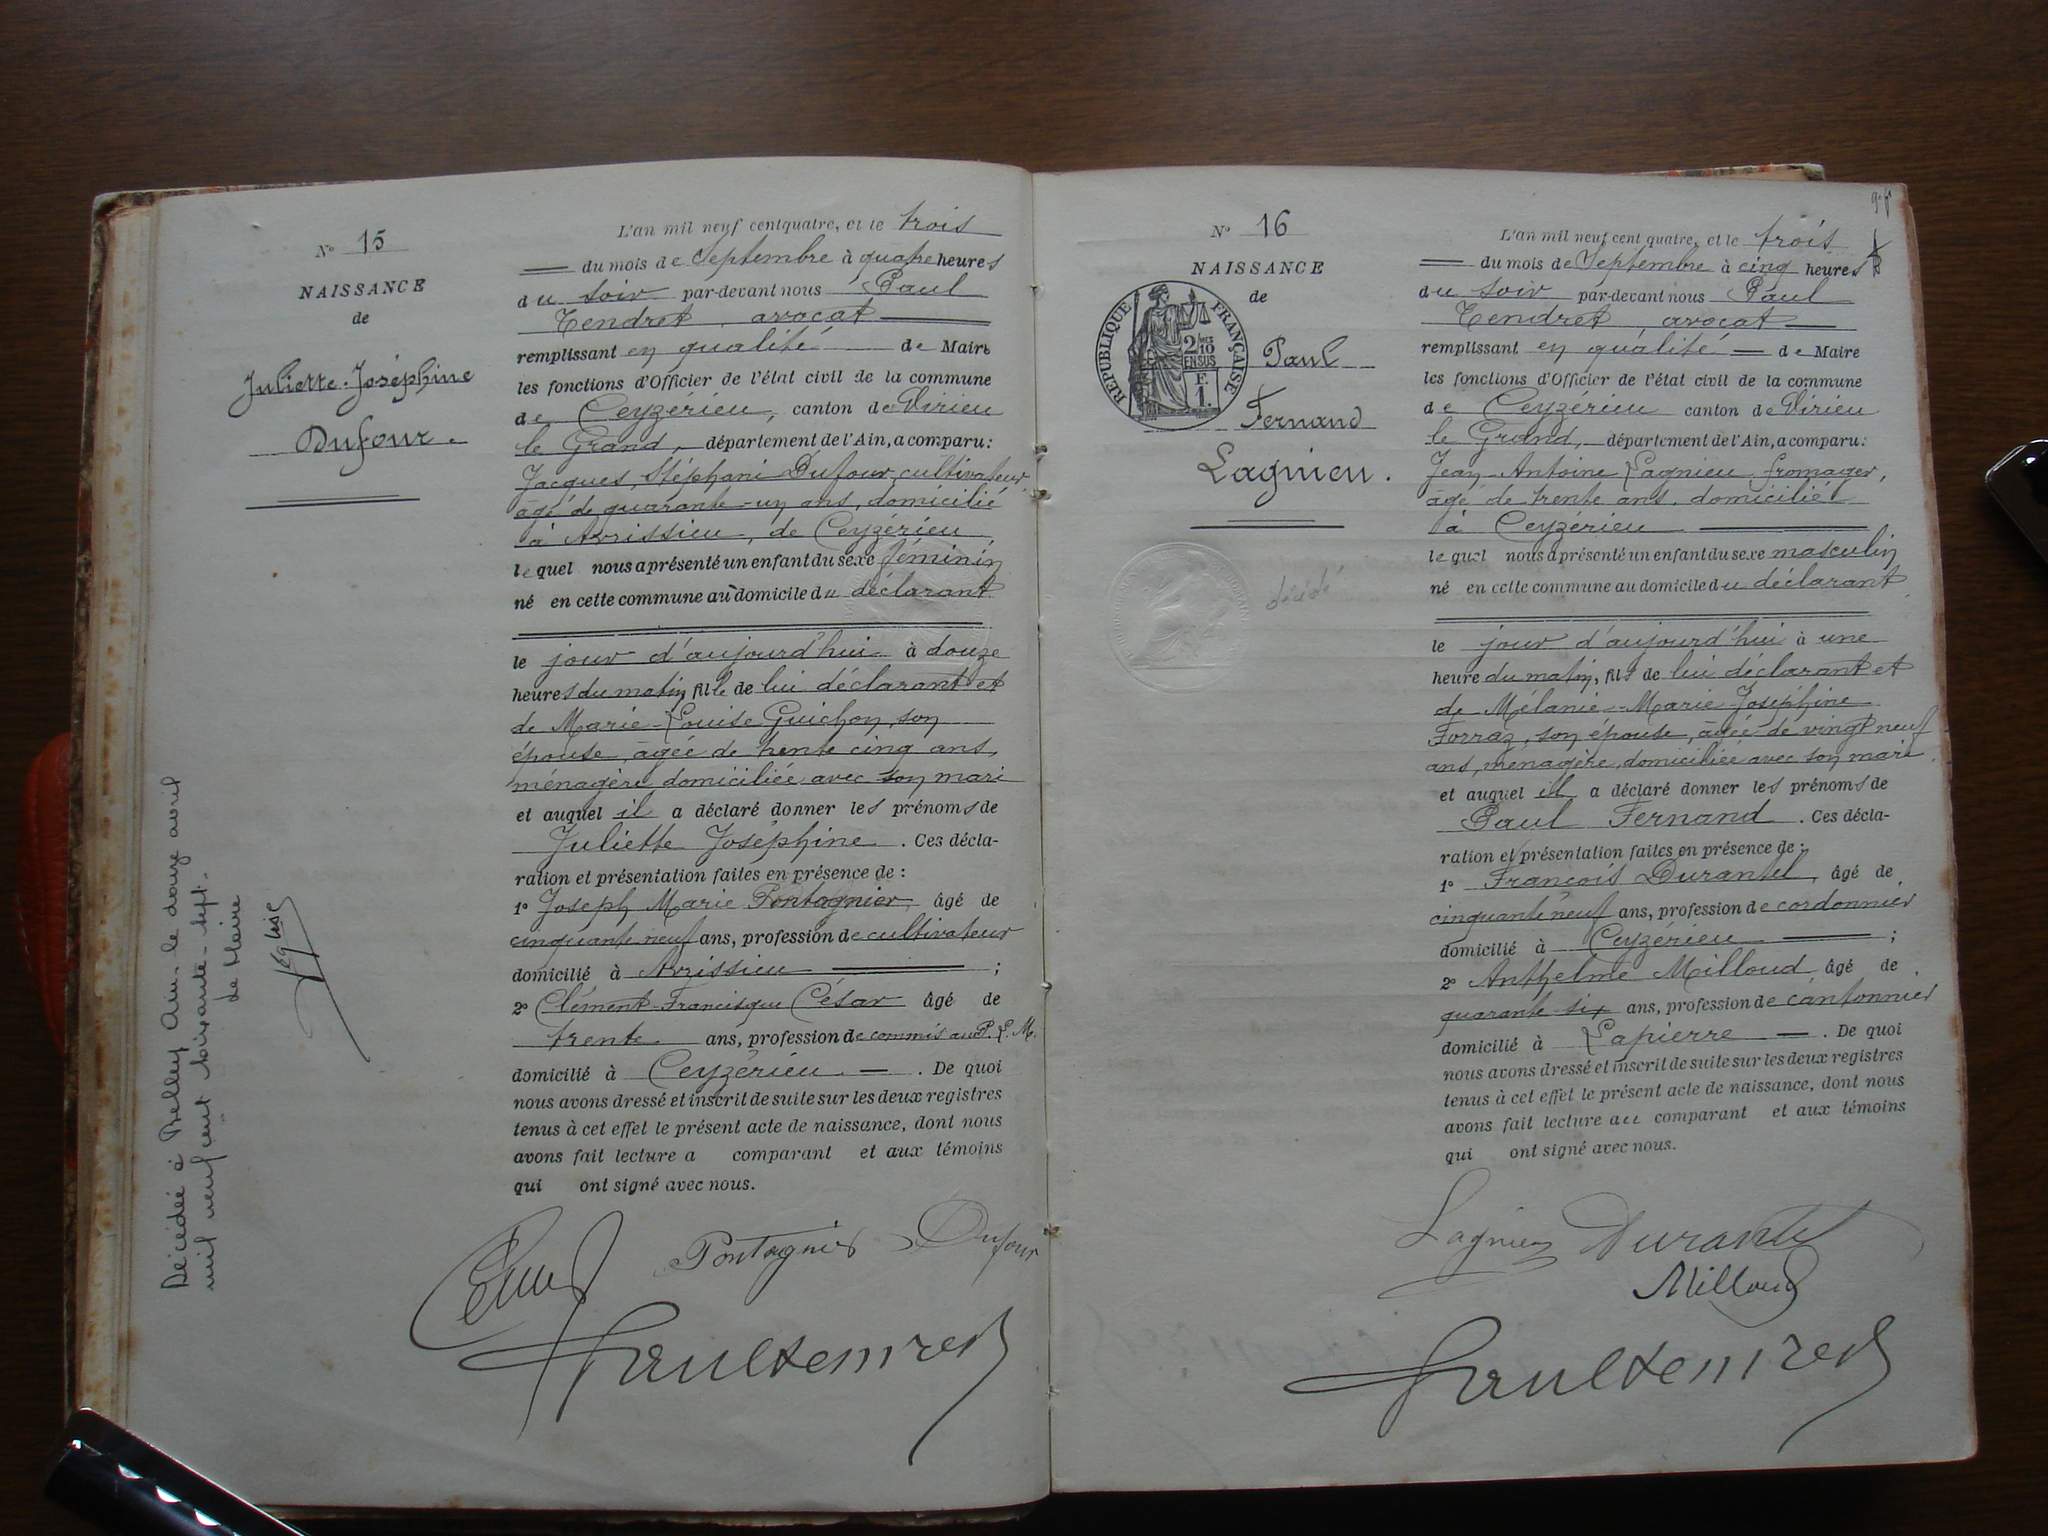 N° 15
NAISSANCE
de
Juliette-Joséphine
Dufour.
L'an mil neuf cent quatre, et le trois
du mois de Septembre à quatre heures
du soir par-devant nous Paul
Tendret, avocat
remplissant en qualité de Maire
les fonctions d'Officier de l'état civil de la commune
de Ceyzérieu, canton de Virieu
le Grand, département de l'Ain, a comparu:
Jacques Stéphani Dufour cultivateur,
âgé de quarante-un ans, domicilié
à Avrissieu, de Ceyzérieu
lequel nous a présenté un enfant du sexe féminin
né en cette commune au domicile du déclarant
le jour d'aujourd'hui à douze
heures du matin, fille de lui déclarant et
de Marie-Louise Guichon, son
épouse, âgée de trente cinq ans,
ménagère, domiciliée avec son mari
et auquel il a déclaré donner les prénoms de
Juliette Joséphine. Ces décla-
ration et présentation faites en présence de :
1° Joseph Marie Pontagnier, âgé de
cinquante neuf ans, profession de cultivateur
domicilié à Avrissieu ;
2° Clément-Francisque César âgé de
trente ans, profession de commis au P. L. M.
domicilié à Ceyzérieu. De quoi
nous avons dressé et inscrit de suite sur les deux registres
tenus à cet effet le présent acte de naissance, dont nous
avons fait lecture a comparant et aux témoins
qui ont signé avec nous.
Pontagnier Dufour
Paul Tendret
Décédée à Belley Ain. le douze avril
mil neuf cent soixante-sept.
Le Maire
N° 16
NAISSANCE
de
Paul
Fernand
Lagnieu.
RÉPUBLIQUE FRANÇAISE
2/10
EN SUS
F.
1.
décédé
L'an mil neuf cent quatre, et le trois
du mois de Septembre à cinq heures
du soir par-devant nous Paul
Tendret, avocat
remplissant en qualité de Maire
les fonctions d'Officier de l'état civil de la commune
de Ceyzérieu canton de Virieu
le Grand, département de l'Ain, a comparu:
Jean-Antoine Lagnieu fromager,
âgé de trente ans, domicilié
à Ceyzérieu
lequel nous a présenté un enfant du sexe masculin
né en cette commune au domicile du déclarant
le jour d'aujourd'hui à une
heure du matin, fils de lui déclarant et
de Mélanie-Marie Joséphine
Forraz, son épouse, âgée de vingt neuf
ans, ménagère, domiciliée avec son mari
et auquel il a déclaré donner les prénoms de
Paul Fernand. Ces décla-
ration et présentation faites en présence de :
1° François Durantel, âgé de
cinquante neuf ans, profession de cordonnier
domicilié à Ceyzérieu ;
2° Anthelme Milloud, âgé de
quarante six ans, profession de cantonnier
domicilié à Lapierre. De quoi
nous avons dressé et inscrit de suite sur les deux registres
tenus à cet effet le présent acte de naissance, dont nous
avons fait lecture au comparant et aux témoins
qui ont signé avec nous.
Lagnieu Durantel
Milloud
Paul Tendret